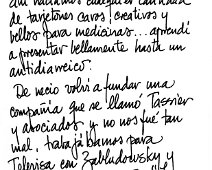 ahí hacíamos cualquier cantidad
de tarjetones caros, creativos y
bellos para medicinas... aprendí
a presentar bellamente hasta un
antidiarreico.
De necio volví a fundar una
compañía que se llamó Tassier
y asociados y no nos fué tan
mal, trabajábamos para
Televisa con Zabludowsky y